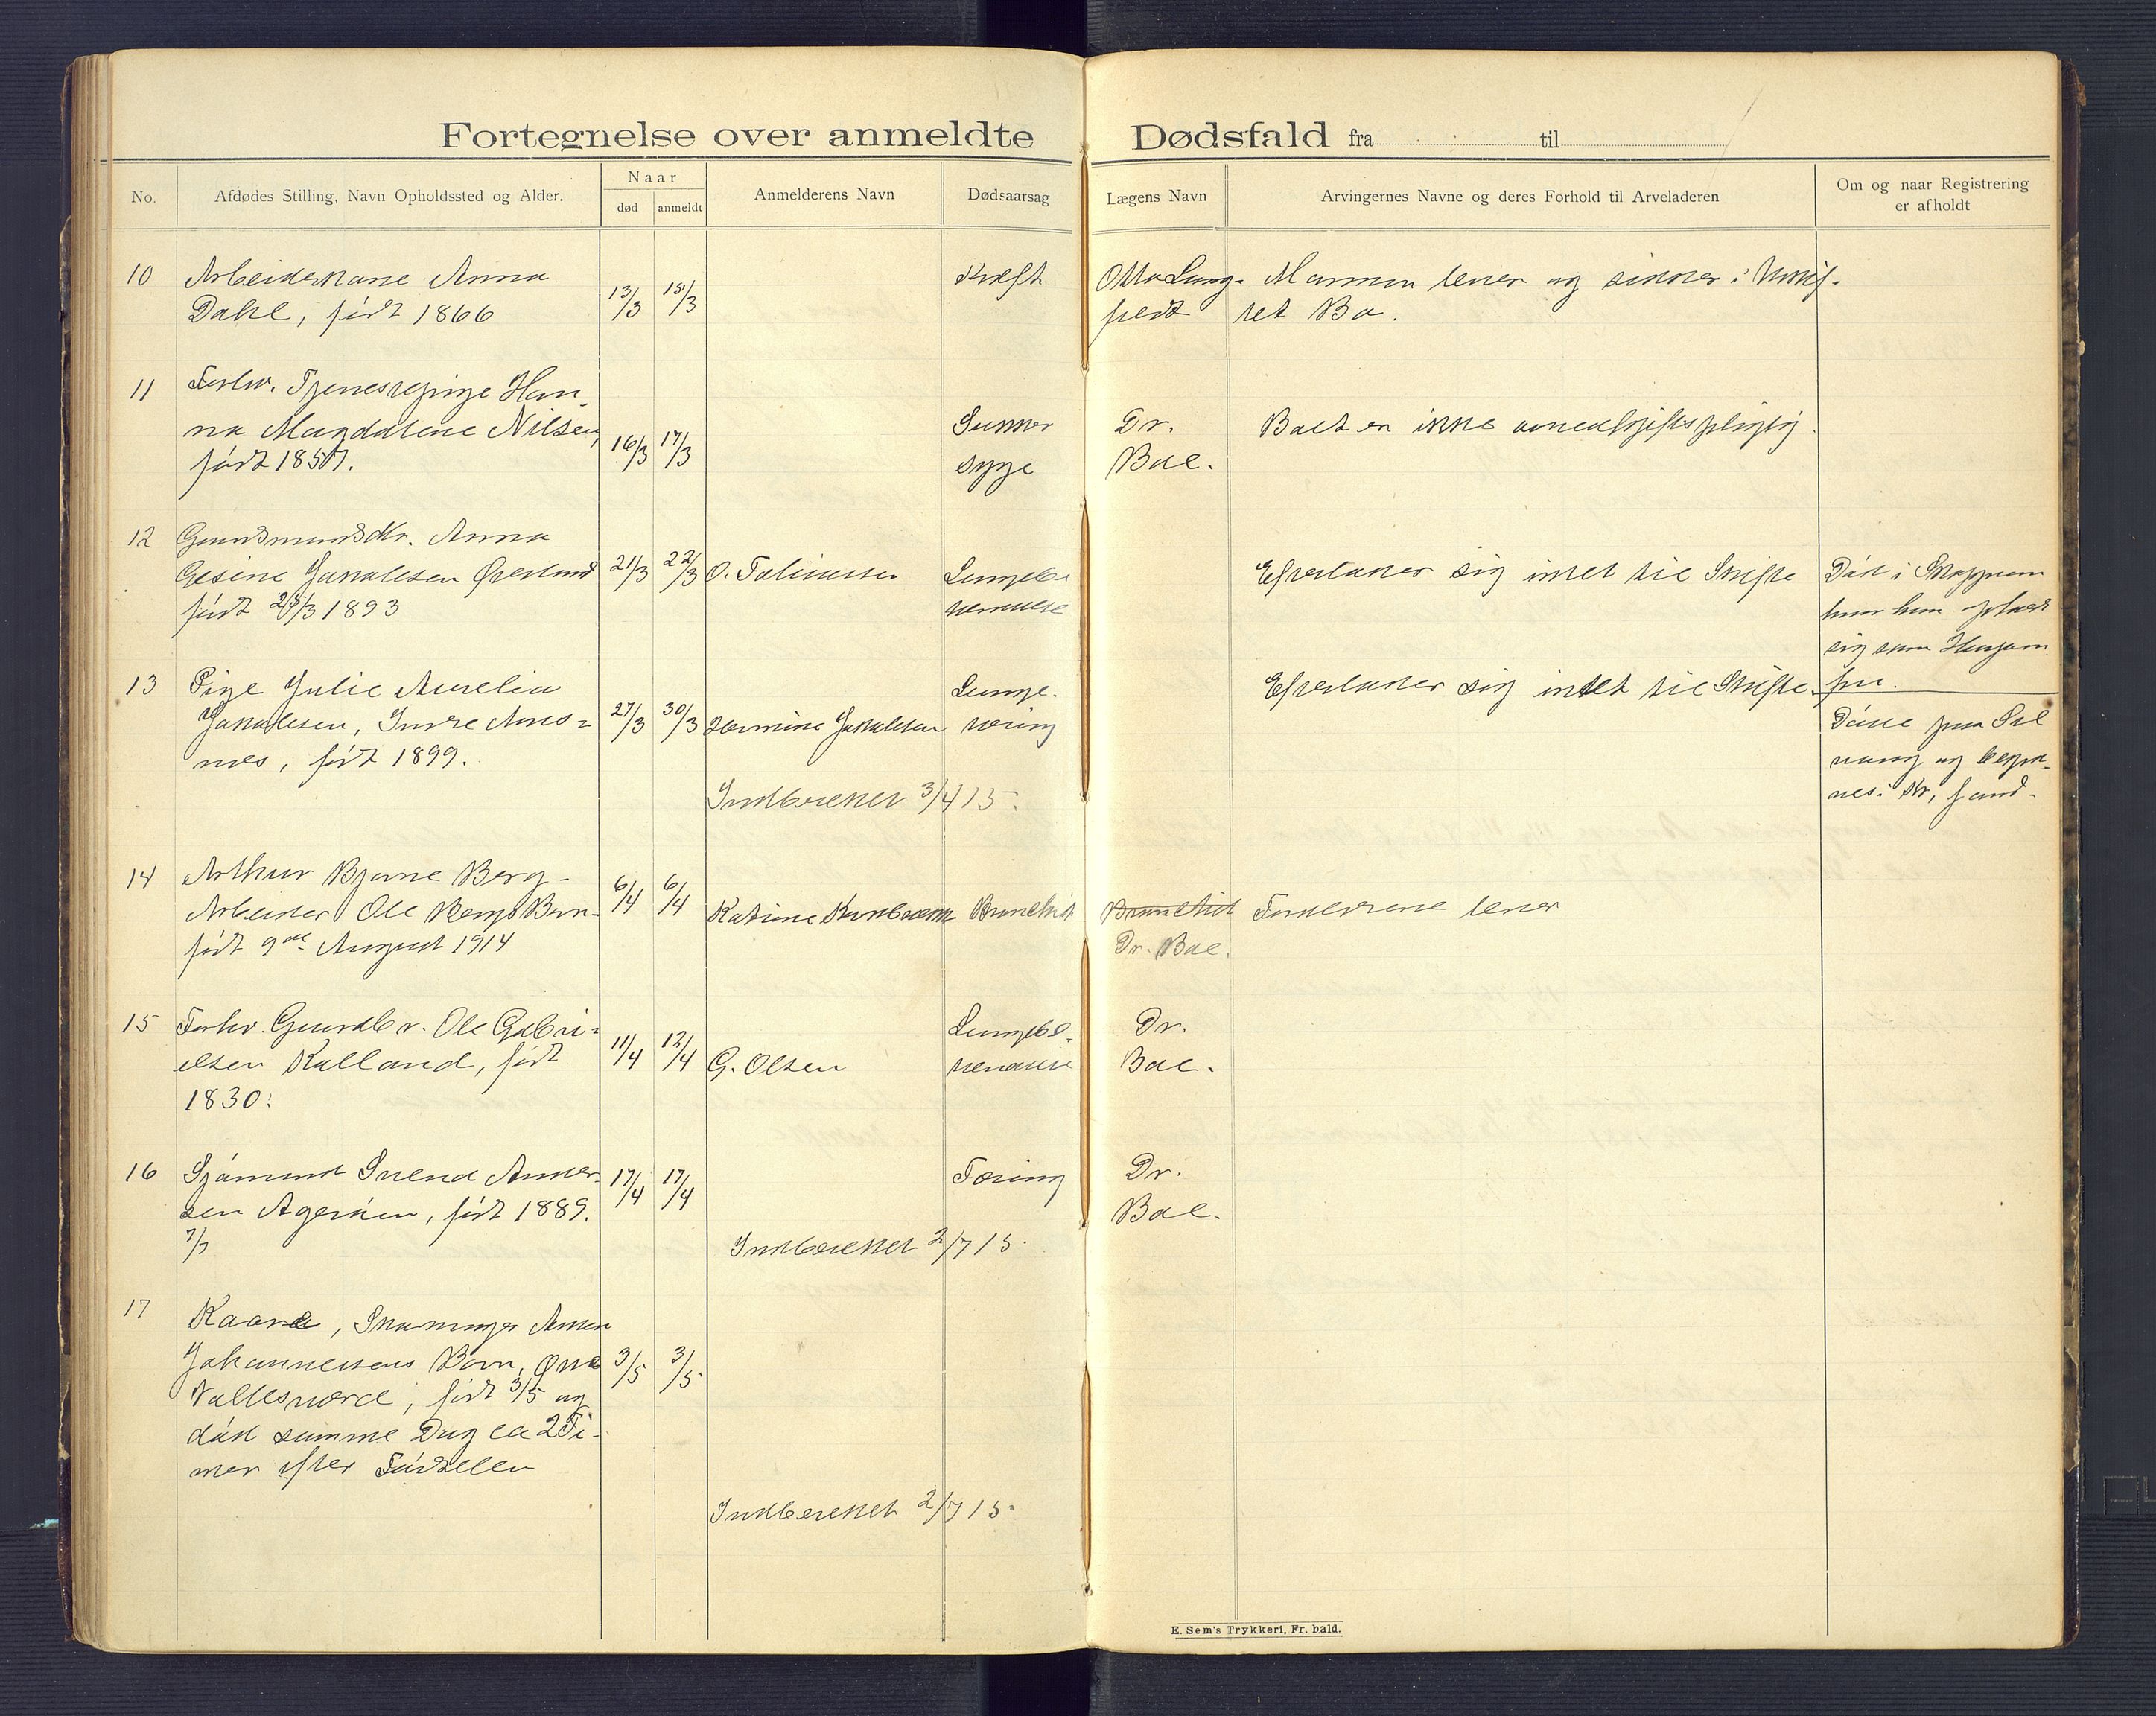 Fortegnelse over anmeldte Dødsfald fra til
No.
Afdødes Stilling, Navn Opholdssted og Alder.
Naar
død
anmeldt
Anmelderens Navn
Dødsaarsag
Lægens Navn
Arvingernes Navne og deres Forhold til Arveladeren
Om og naar Registrering
er afholdt
10 Arbeiderkone Anna
Dahl, født 1866
13/3 15/3
Kræft
Otto Lung-
Manden lever og sidder i Uskif-
tet Bo.
11 Forhv. Tjenestepige Han-
na Magdalene Nilsen,
født 1857.
16/3 17/3
Sukker
syge
Dr.
Bae.
Boet er ikke arveafgiftspligtig
12 Gaardmandsdtr. Anna
Gesine Jakobsen
født 1893
21/3 22/3
Lungebe
tændelse
Efterlader sig intet til Skifte
Død i
hvor hun opholdt
sig som
13 Pige Julie Aurelia
Jakobsen, Indre Aros=
nes, født 1899.
27/3 30/3
Hermine Jakobsen
Lunge-
tæring
Efterlader sig intet til Skifte.
Døde paa
Indberettet 3/4 15.
14 Arthur Bjarne Berg-
Arbeider Ole Bergs Barn-
født 9de August 1914
6/4 6/4
Katrine
Bronchit
Bronchit
Dr. Bae.
Forældrene lever
15 Forhv. Gaardbr. Ole Gabri=
elsen Kalland, født
1830.
11/4 12/4
G. Olsen
Lungebe-
tændelse
Dr.
Bae.
16 Sjømand Svend Ander-
sen Ageröen, født 1889.
7/7
17/4 17/4
Tæring
Dr.
Bae.
Indberettet 2/7 15.
17 Kaare, Skomager
Johannesens Barn,
Vallesværd, født 3/5 og
død samme Dag ca 2 Ti-
mer efter Fødselen
3/5 3/5
Indberettet 2/7 15.
E. Sem's Trykkeri, Fr. hald.